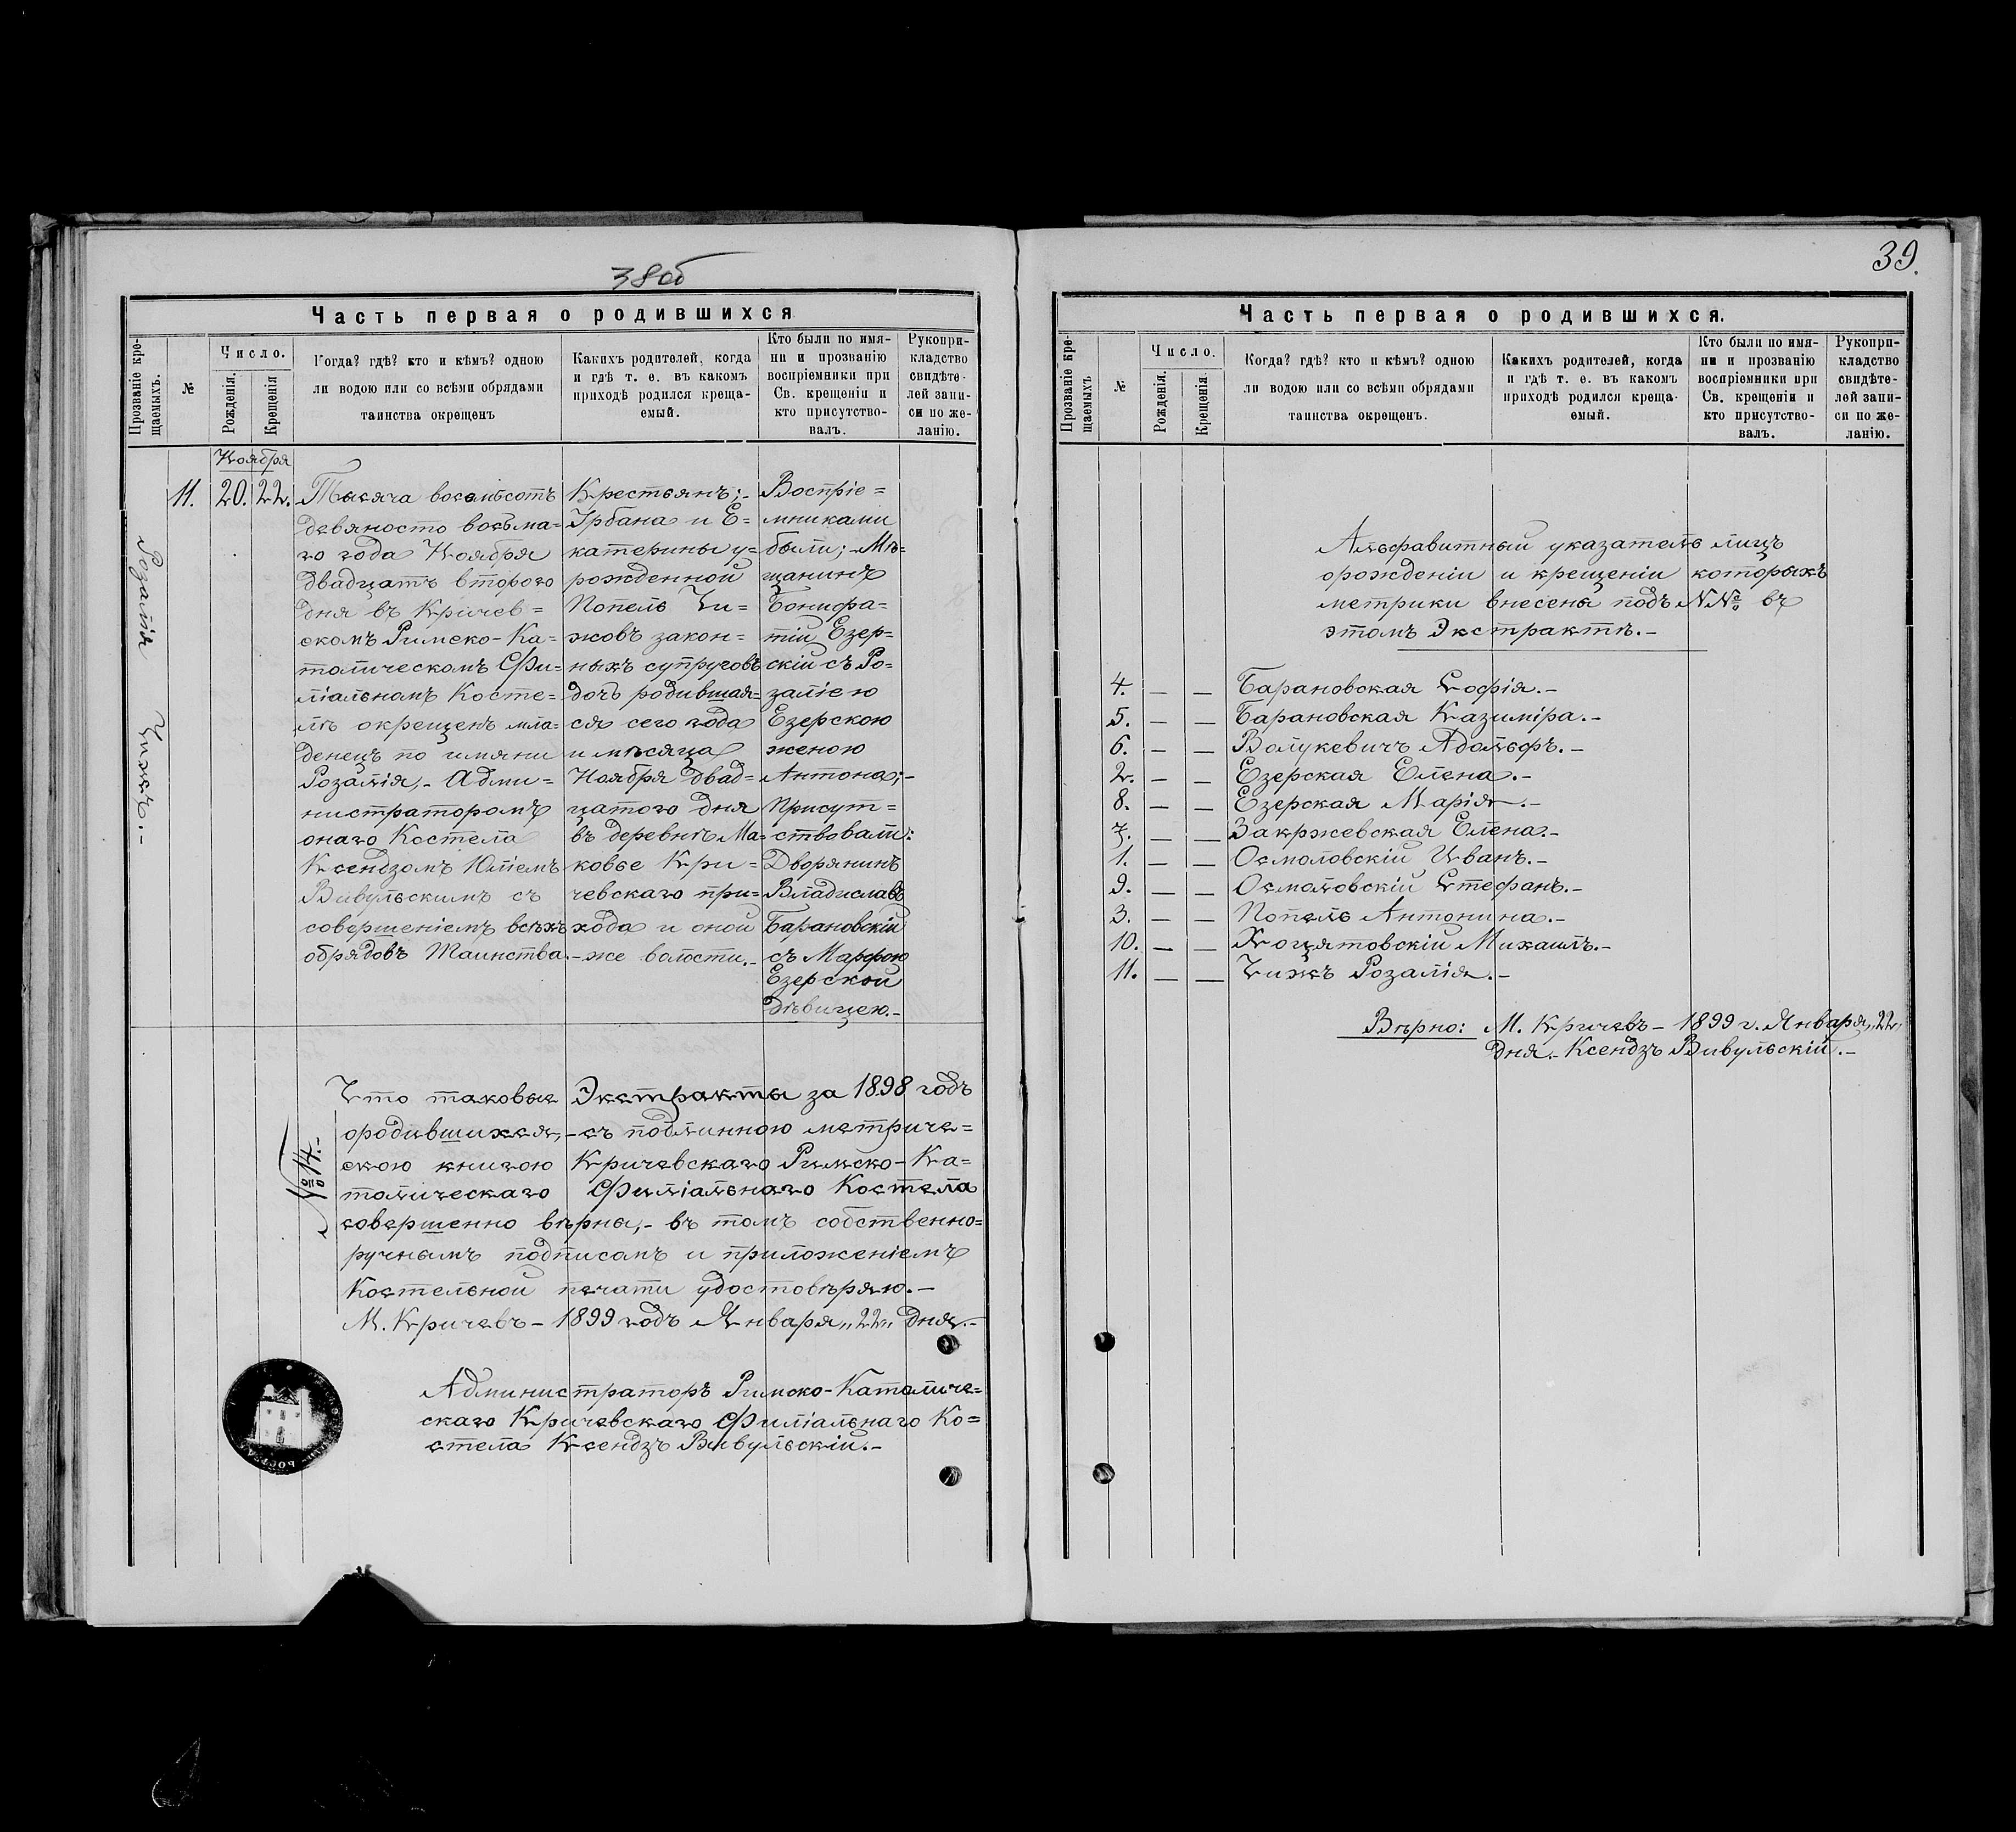 38об
Часть первая о родившихся
Прозваніе кре-
щаемыхъ.
№
Число.
Рожденія.
Крещенія
Когда? гдѣ? кто и кѣмъ? одною
ли водою или со всѣми обрядами
таинства окрещенъ
Какихъ родителей, когда
и гдѣ т. е. въ какомъ
приходѣ родился креща-
емый.
Кто были по имя-
ни и прозванію
воспріемники при
Св. крещеніи и
кто присутство-
валъ.
Рукопри-
кладство
свидѣте-
лей запи-
си по же-
ланію.
Розалія Чижъ.-
Ноября
11. 20. 22.
Тысяча восемьсотъ
девяносто восьма=
го года Ноября
двадцать второго
дня въ Кричев=
скомъ Римско-Ка=
толическомъ Фи=
ліальномъ Косте=
лѣ окрещенъ мла=
денецъ по имяни
Розалія,- Адми=
нистраторомъ
онаго Костела
Ксендзомъ Юліемъ
Вивульскимъ съ
совершеніемъ всѣхъ
обрядовъ Таинства.-
Крестьянъ;-
Урбана и Е=
катерины у=
рожденной
Попель Чи=
жовъ закон=
ныхъ супруговъ
дочь родившая=
ся сего года
и мѣсяца
Ноября двад=
цатого дня
въ деревнѣ Ма=
ковье Кри=
чевскаго при=
хода и оной
же волости.-
Воспріе=
мниками
были;- Мѣ=
щанинъ
Бонифа=
тій Езер=
скій съ Ро=
заліею
Езерскою
женою
Антона;-
Присут=
ствовали:
Дворянинъ
Владиславъ
Барановскій
съ Марфою
Езерской
дѣвицею.-
№ 14.-
Что таковые Экстракты за 1898 годъ
ородившихся,- съ подлинною метриче=
скою книгою Кричевскаго Римско-Ка=
толическаго Филіальнаго Костела
совершенно вѣрны,- въ томъ собственно=
ручнымъ подписомъ и приложеніемъ
Костельной печати удостовѣряю.-
М. Кричевъ - 1899 годъ Января „22„ дня.-
Администраторъ Римско-Католиче=
скаго Кричевскаго Филіальнаго Ко=
стела Ксендзъ Вивульскій.-
39.
Часть первая о родившихся.
Прозваніе кре-
щаемыхъ
№
Число.
Рожденія.
Крещенія.
Когда? гдѣ? кто и кѣмъ? одною
ли водою или со всѣми обрядами
таинства окрещенъ.
Какихъ родителей, когда
и гдѣ т. е. въ какомъ
приходѣ родился креща-
емый.
Кто были по имя-
ни и прозванію
воспріемники при
Св. крещеніи и
кто присутство-
валъ.
Рукопри-
кладство
свидѣте-
лей запи-
си по же-
ланію.
Альфавитный указатель лицъ
орожденіи и крещеніи которыхъ
метрики внесены подъ №№ въ
этомъ Экстрактѣ.-
4. — — Барановская Софія.-
5. — — Барановская Казиміра.-
6. — — Валукевичъ Адольфъ.-
2. — — Езерская Елена.-
8. — — Езерская Марія.-
7. — — Закржевская Елена.-
1. — — Осмоловскій Иванъ.-
9. — — Осмоловскій Стефанъ.-
3. — — Попель Антонина.-
10. — — Хоцятовскій Михаилъ.-
11. — — Чижъ Розалія.-
Вѣрно: М. Кричевъ - 1899 г. Января „22„
дня.- Ксендзъ Вивульскій.-